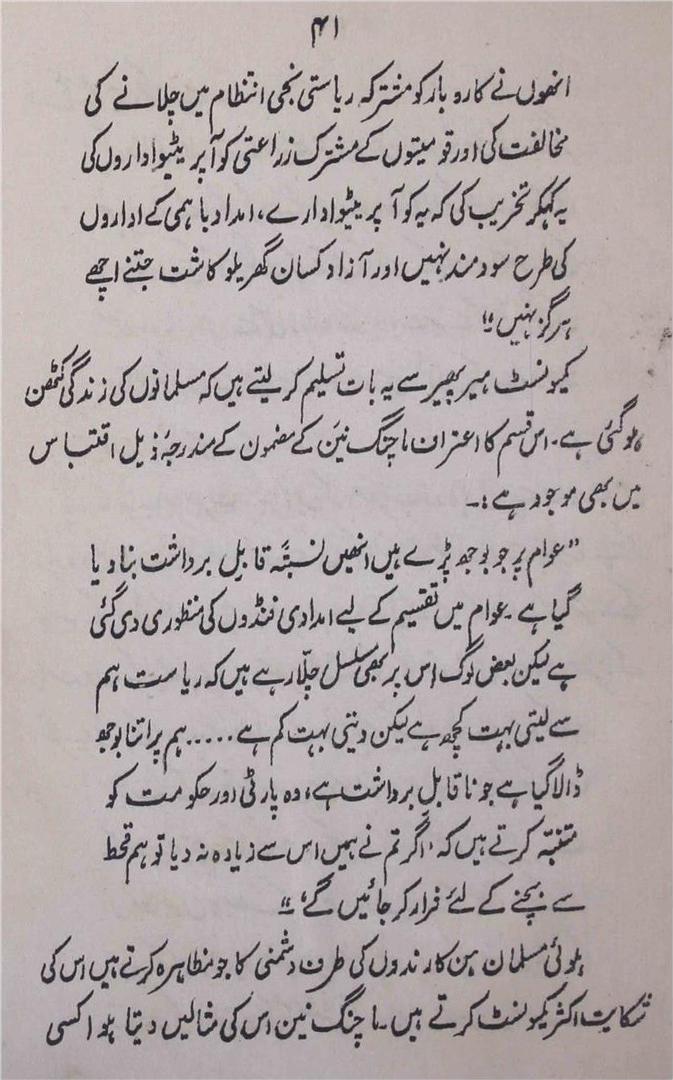 ۴۱
انھوں نے کاروبار کو مشترکہ ریاستی نجی انتظام میں چلانے کی
مخالفت کی اور قومیتوں کے مشترک زراعتی کوآپریٹیو اداروں کی
یہ کہکر تخریب کی کہ یہ کوآپریٹیو ادارے، امداد باہمی کے اداروں
کی طرح سودمند نہیں اور آزاد کسان گھریلو کاشت جتنے اچھے
ہرگز نہیں"
کمیونسٹ ہیر پھیر سے یہ بات تسلیم کر لیتے ہیں کہ مسلمانوں کی زندگی کٹھن
ہو گئی ہے۔ اس قسم کا اعتراف ما چنگ نین کے مضمون کے مندرجۂ ذیل اقتباس
میں بھی موجود ہے:۔
"عوام پر جو بوجھ پڑے ہیں انھیں نسبتہً قابلِ برداشت بنا دیا
گیا ہے۔ عوام میں تقسیم کے لیے امدادی فنڈوں کی منظوری دی گئی
ہے لیکن بعض لوگ اس پر بھی مسلسل چلّا رہے ہیں کہ ریاست ہم
سے لیتی بہت کچھ ہے لیکن دیتی بہت کم ہے ..... ہم پر اتنا بوجھ
ڈالا گیا ہے جو ناقابلِ برداشت ہے، وہ پارٹی اور حکومت کو
متنبّہ کرتے ہیں کہ 'اگر تم نے ہمیں اس سے زیادہ نہ دیا تو ہم قحط
سے بچنے کے لئے فرار کر جائیں گے' "
ہوئی مسلمان ہن کارندوں کی طرف دشمنی کا جو مظاہرہ کرتے ہیں اس کی
شکایت اکثر کمیونسٹ کرتے ہیں۔ ما چنگ نین اس کی مثالیں دیتا ہوا کسی